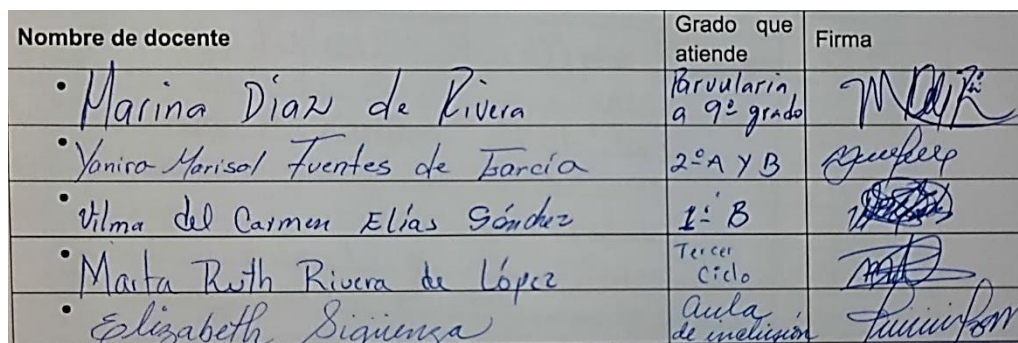 Nombre de docente Grado que atiende Firma
• Marina Díaz de Rivera Parvularia a 9º grado
• Yanira Marisol Fuentes de García 2º A Y B
• Vilma del Carmen Elías Sánchez 1º B
• Marta Ruth Rivera de López Tercer Ciclo
• Elizabeth Sigüenza aula de inclusión